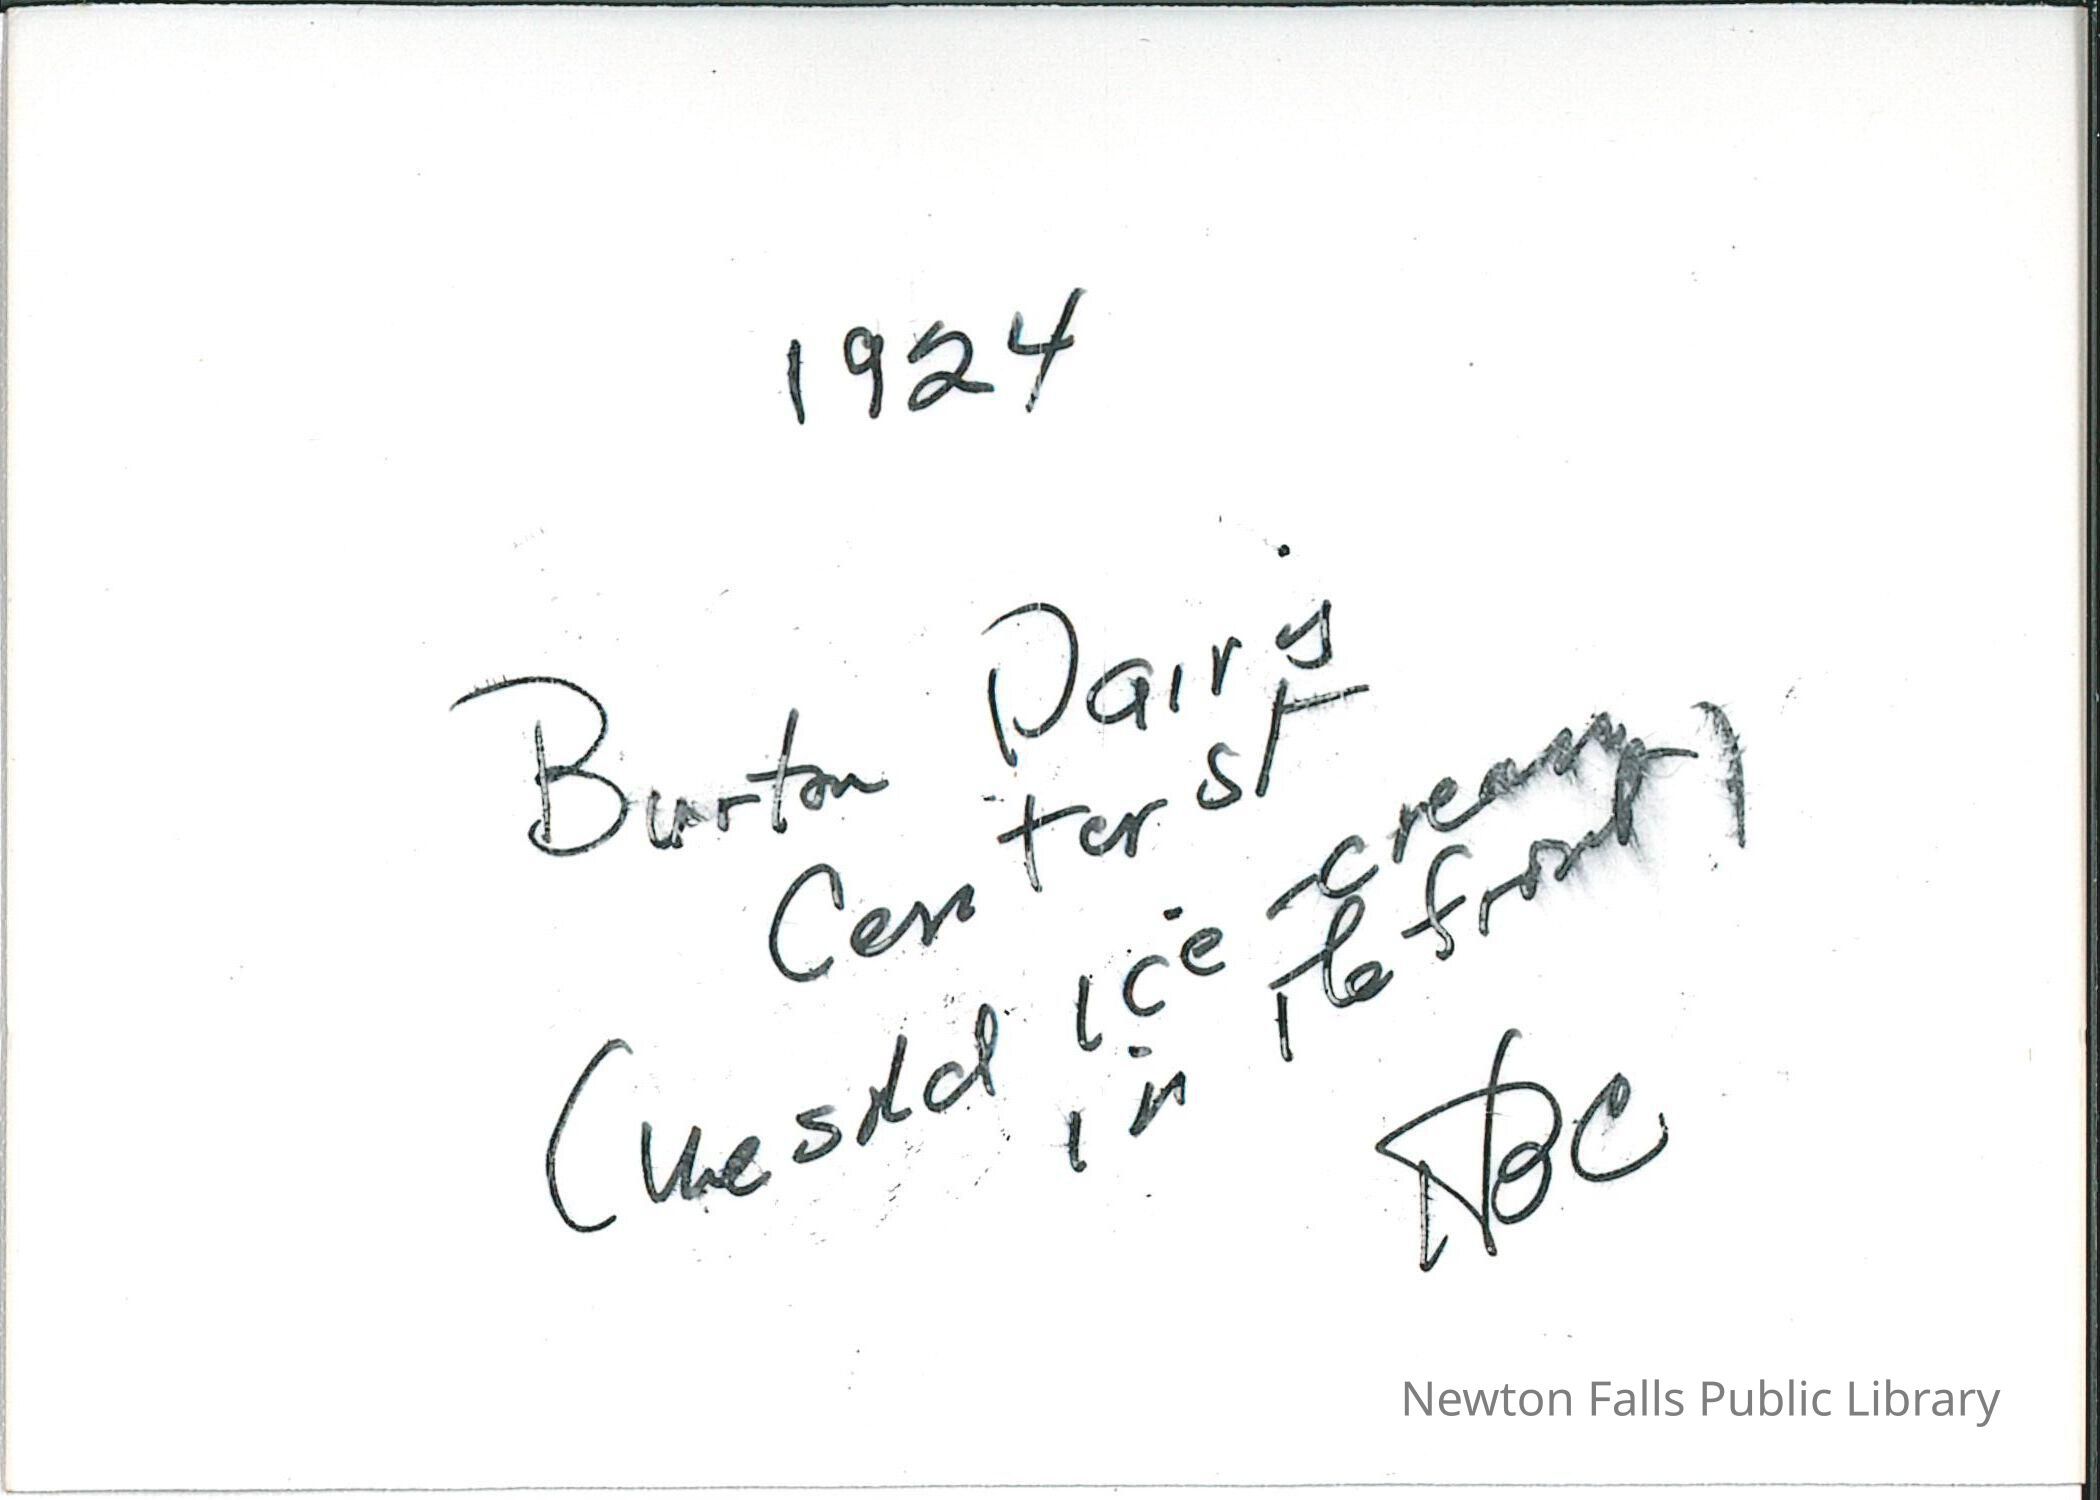 1924
Burton Dairy
Center St
(We sold ice-cream
in the front)
ABC
Newton Falls Public Library